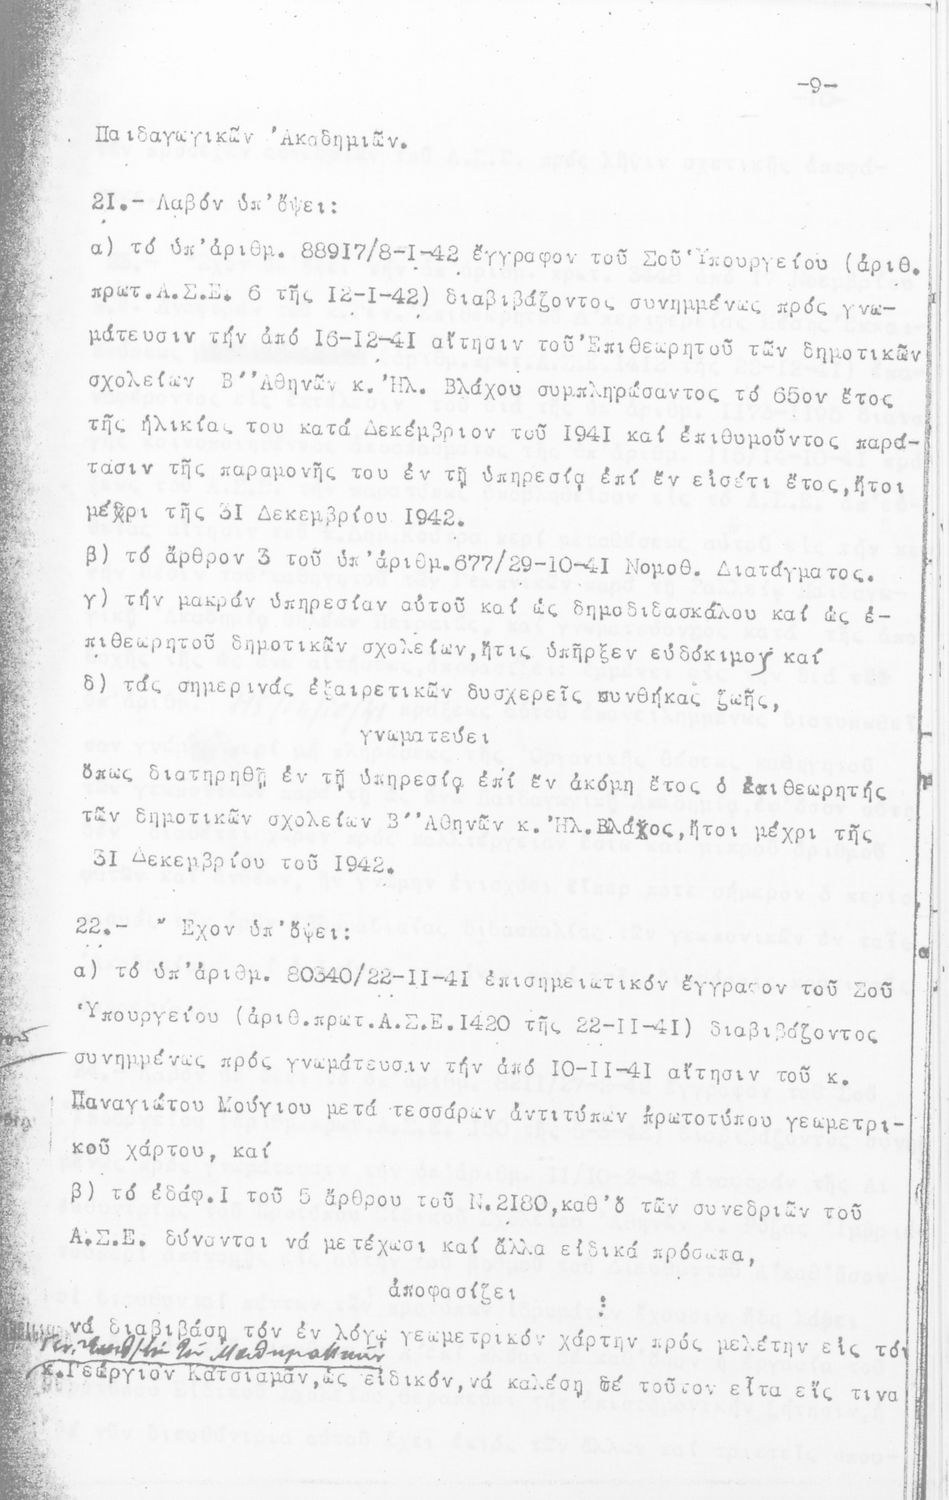 -9-
Παιδαγωγικῶν Ἀκαδημιῶν.
21.- Λαβόν ὑπ'ὄψει:
α) τό ὑπ'ἀριθμ. 88917/8-I-42 ἔγγραφον τοῦ Σοῦ Ὑπουργείου (ἀριθ.
πρωτ.Α.Σ.Ε. 6 τῆς I2-I-42) διαβιβάζοντος συνημμένως πρός γνω-
μάτευσιν τήν ἀπό I6-I2-4I αἴτησιν τοῦ Ἐπιθεωρητοῦ τῶν δημοτικῶν
σχολείων Β´´Ἀθηνῶν κ. Ἠλ. Βλάχου συμπληρώσαντος τό 65ον ἔτος
τῆς ἡλικίας του κατά Δεκέμβριον τοῦ I94I καί ἐπιθυμοῦντος παρά-
τασιν τῆς παραμονῆς του ἐν τῇ ὑπηρεσίᾳ ἐπί ἕν εἰσέτι ἔτος,ἤτοι
μέχρι τῆς 3I Δεκεμβρίου I942.
β) τό ἄρθρον 3 τοῦ ὑπ'ἀριθμ.677/29-I0-4I Νομοθ. Διατάγματος.
γ) τήν μακράν ὑπηρεσίαν αὐτοῦ καί ὡς δημοδιδασκάλου καί ὡς ἐ-
πιθεωρητοῦ δημοτικῶν σχολείων,ἥτις ὑπῆρξεν εὐδόκιμος καί
δ) τάς σημερινάς ἐξαιρετικῶν δυσχερεῖς συνθήκας ζωῆς,
γνωματεύει
ὅπως διατηρηθῇ ἐν τῇ ὑπηρεσίᾳ ἐπί ἕν ἀκόμη ἔτος ὁ ἐπιθεωρητής
τῶν δημοτικῶν σχολείων Β´´Ἀθηνῶν κ. Ἠλ.Βλάχος,ἤτοι μέχρι τῆς
3I Δεκεμβρίου τοῦ I942.
22.- Ἔχον ὑπ'ὄψει:
α) τό ὑπ'ἀριθμ. 80340/22-II-4I ἐπισημειωτικόν ἔγγραφον τοῦ Σοῦ
Ὑπουργείου (ἀριθ.πρωτ.Α.Σ.Ε.I420 τῆς 22-II-4I) διαβιβάζοντος
συνημμένως πρός γνωμάτευσιν τήν ἀπό I0-II-4I αἴτησιν τοῦ κ.
Παναγιώτου Μούγιου μετά τεσσάρων ἀντιτύπων πρωτοτύπου γεωμετρι-
κοῦ χάρτου, καί
β) τό ἐδάφ.I τοῦ 5 ἄρθρου τοῦ Ν.2I80,καθ'ὅ τῶν συνεδριῶν τοῦ
Α.Σ.Ε. δύνανται νά μετέχωσι καί ἄλλα εἰδικά πρόσωπα,
ἀποφασίζει :
νά διαβιβάσῃ τόν ἐν λόγῳ γεωμετρικόν χάρτην πρός μελέτην εἰς τόν
Γεν. Ἐπιθ/τήν τῶν Μαθηματικῶν
κ.Γεώργιον Κατσιαμᾶν,ὡς εἰδικόν,νά καλέσῃ δέ τοῦτον εἶτα εἴς τινα